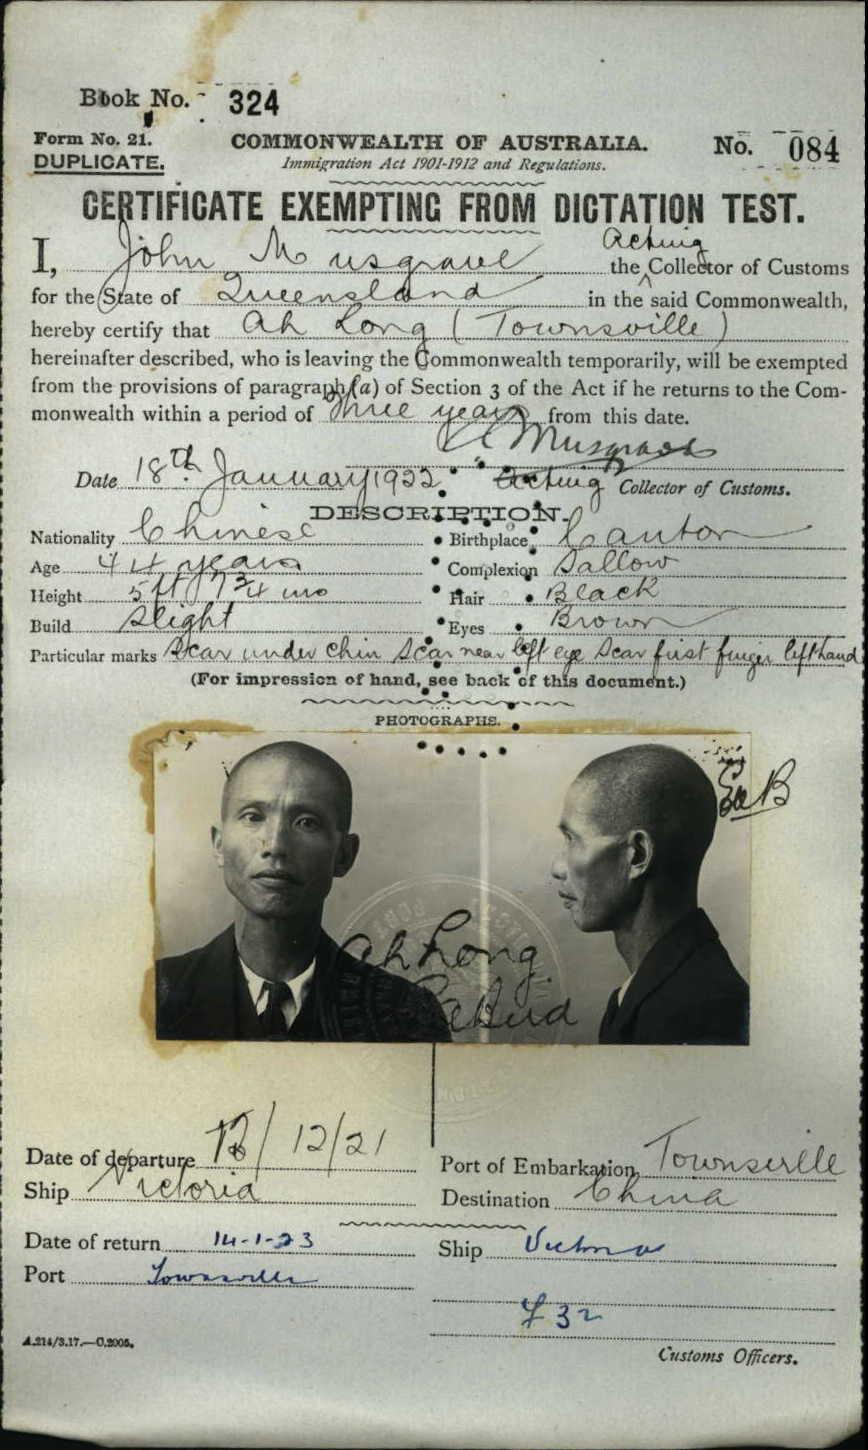 Book No. 324
Form No. 21.
COMMONWEALTH OF AUSTRALIA.
No. 084
DUPLICATE.
Immigration Act 1901-1912 and Regulations.
CERTIFICATE EXEMPTING FROM DICTATION TEST.
Acting
I, John Musgrave the Collector of Customs
for the State of Queensland in the said Commonwealth,
hereby certify that Ah Long (Townsville)
hereinafter described, who is leaving the Commonwealth temporarily, will be exempted
from the provisions of paragraph (a) of Section 3 of the Act if he returns to the Com-
monwealth within a period of three years from this date.
Musgrave
Date 18th January 1922. Acting Collector of Customs.
DESCRIPTION.
Nationality Chinese Birthplace Canton
Age 44 years Complexion Sallow
Height 5ft 7¾ ins Hair Black
Build Slight Eyes Brown
Particular marks Scar under chin Scar near left eye Scar first finger left hand
(For impression of hand, see back of this document.)
PHOTOGRAPHS.
Ah Long
Date of departure 13/12/21 Port of Embarkation Townsville
Ship Victoria Destination China
Date of return 14-1-23 Ship Victoria
Port Townsville
£32
A.214/3.17.—C.2005.
Customs Officers.